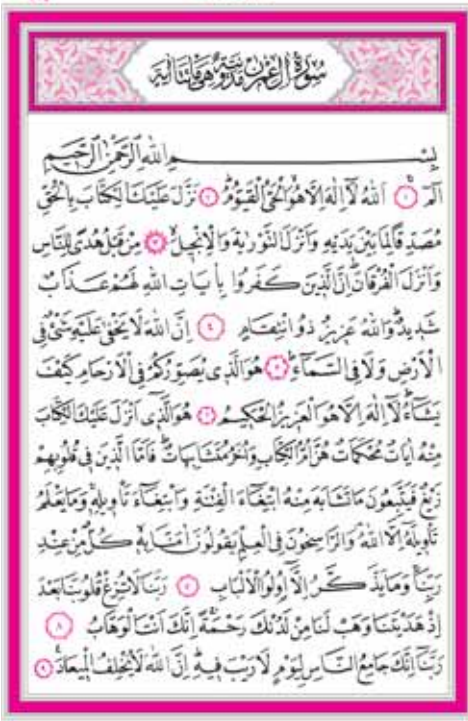 سُورَةُ اٰلِ عِمْرٰنَ مَدَنِيَّةٌ وَهِيَ مِائَتَا اٰيَةٍ
بِسْمِ اللّٰهِ الرَّحْمٰنِ الرَّحِيمِ
الٓمٓ ١ اَللّٰهُ لَٓا اِلٰهَ اِلَّا هُوَ الْحَيُّ الْقَيُّومُ ٢ نَزَّلَ عَلَيْكَ الْكِتَابَ بِالْحَقِّ
مُصَدِّقًا لِمَا بَيْنَ يَدَيْهِ وَاَنْزَلَ التَّوْرٰيةَ وَالْاِنْجِيلَ ٣ مِنْ قَبْلُ هُدًى لِلنَّاسِ
وَاَنْزَلَ الْفُرْقَانَ اِنَّ الَّذِينَ كَفَرُوا بِاٰيَاتِ اللّٰهِ لَهُمْ عَذَابٌ
شَدِيدٌ وَاللّٰهُ عَزِيزٌ ذُو انْتِقَامٍ ٤ اِنَّ اللّٰهَ لَا يَخْفٰى عَلَيْهِ شَيْءٌ فِي
الْاَرْضِ وَلَا فِي السَّمَٓاءِ ٥ هُوَ الَّذِي يُصَوِّرُكُمْ فِي الْاَرْحَامِ كَيْفَ
يَشَٓاءُ لَٓا اِلٰهَ اِلَّا هُوَ الْعَزِيزُ الْحَكِيمُ ٦ هُوَ الَّذِٓي اَنْزَلَ عَلَيْكَ الْكِتَابَ
مِنْهُ اٰيَاتٌ مُحْكَمَاتٌ هُنَّ اُمُّ الْكِتَابِ وَاُخَرُ مُتَشَابِهَاتٌ فَاَمَّا الَّذِينَ فِي قُلُوبِهِمْ
زَيْغٌ فَيَتَّبِعُونَ مَا تَشَابَهَ مِنْهُ ابْتِغَٓاءَ الْفِتْنَةِ وَابْتِغَٓاءَ تَأْوِيلِهِ وَمَا يَعْلَمُ
تَأْوِيلَهُٓ اِلَّا اللّٰهُ وَالرَّاسِخُونَ فِي الْعِلْمِ يَقُولُونَ اٰمَنَّا بِهِ كُلٌّ مِنْ عِنْدِ
رَبِّنَا وَمَا يَذَّكَّرُ اِلَّٓا اُو۬لُوا الْاَلْبَابِ ٧ رَبَّنَا لَا تُزِغْ قُلُوبَنَا بَعْدَ
اِذْ هَدَيْتَنَا وَهَبْ لَنَا مِنْ لَدُنْكَ رَحْمَةً اِنَّكَ اَنْتَ الْوَهَّابُ ٨
رَبَّنَٓا اِنَّكَ جَامِعُ النَّاسِ لِيَوْمٍ لَا رَيْبَ فِيهِ اِنَّ اللّٰهَ لَا يُخْلِفُ الْمِيعَادَ ٩